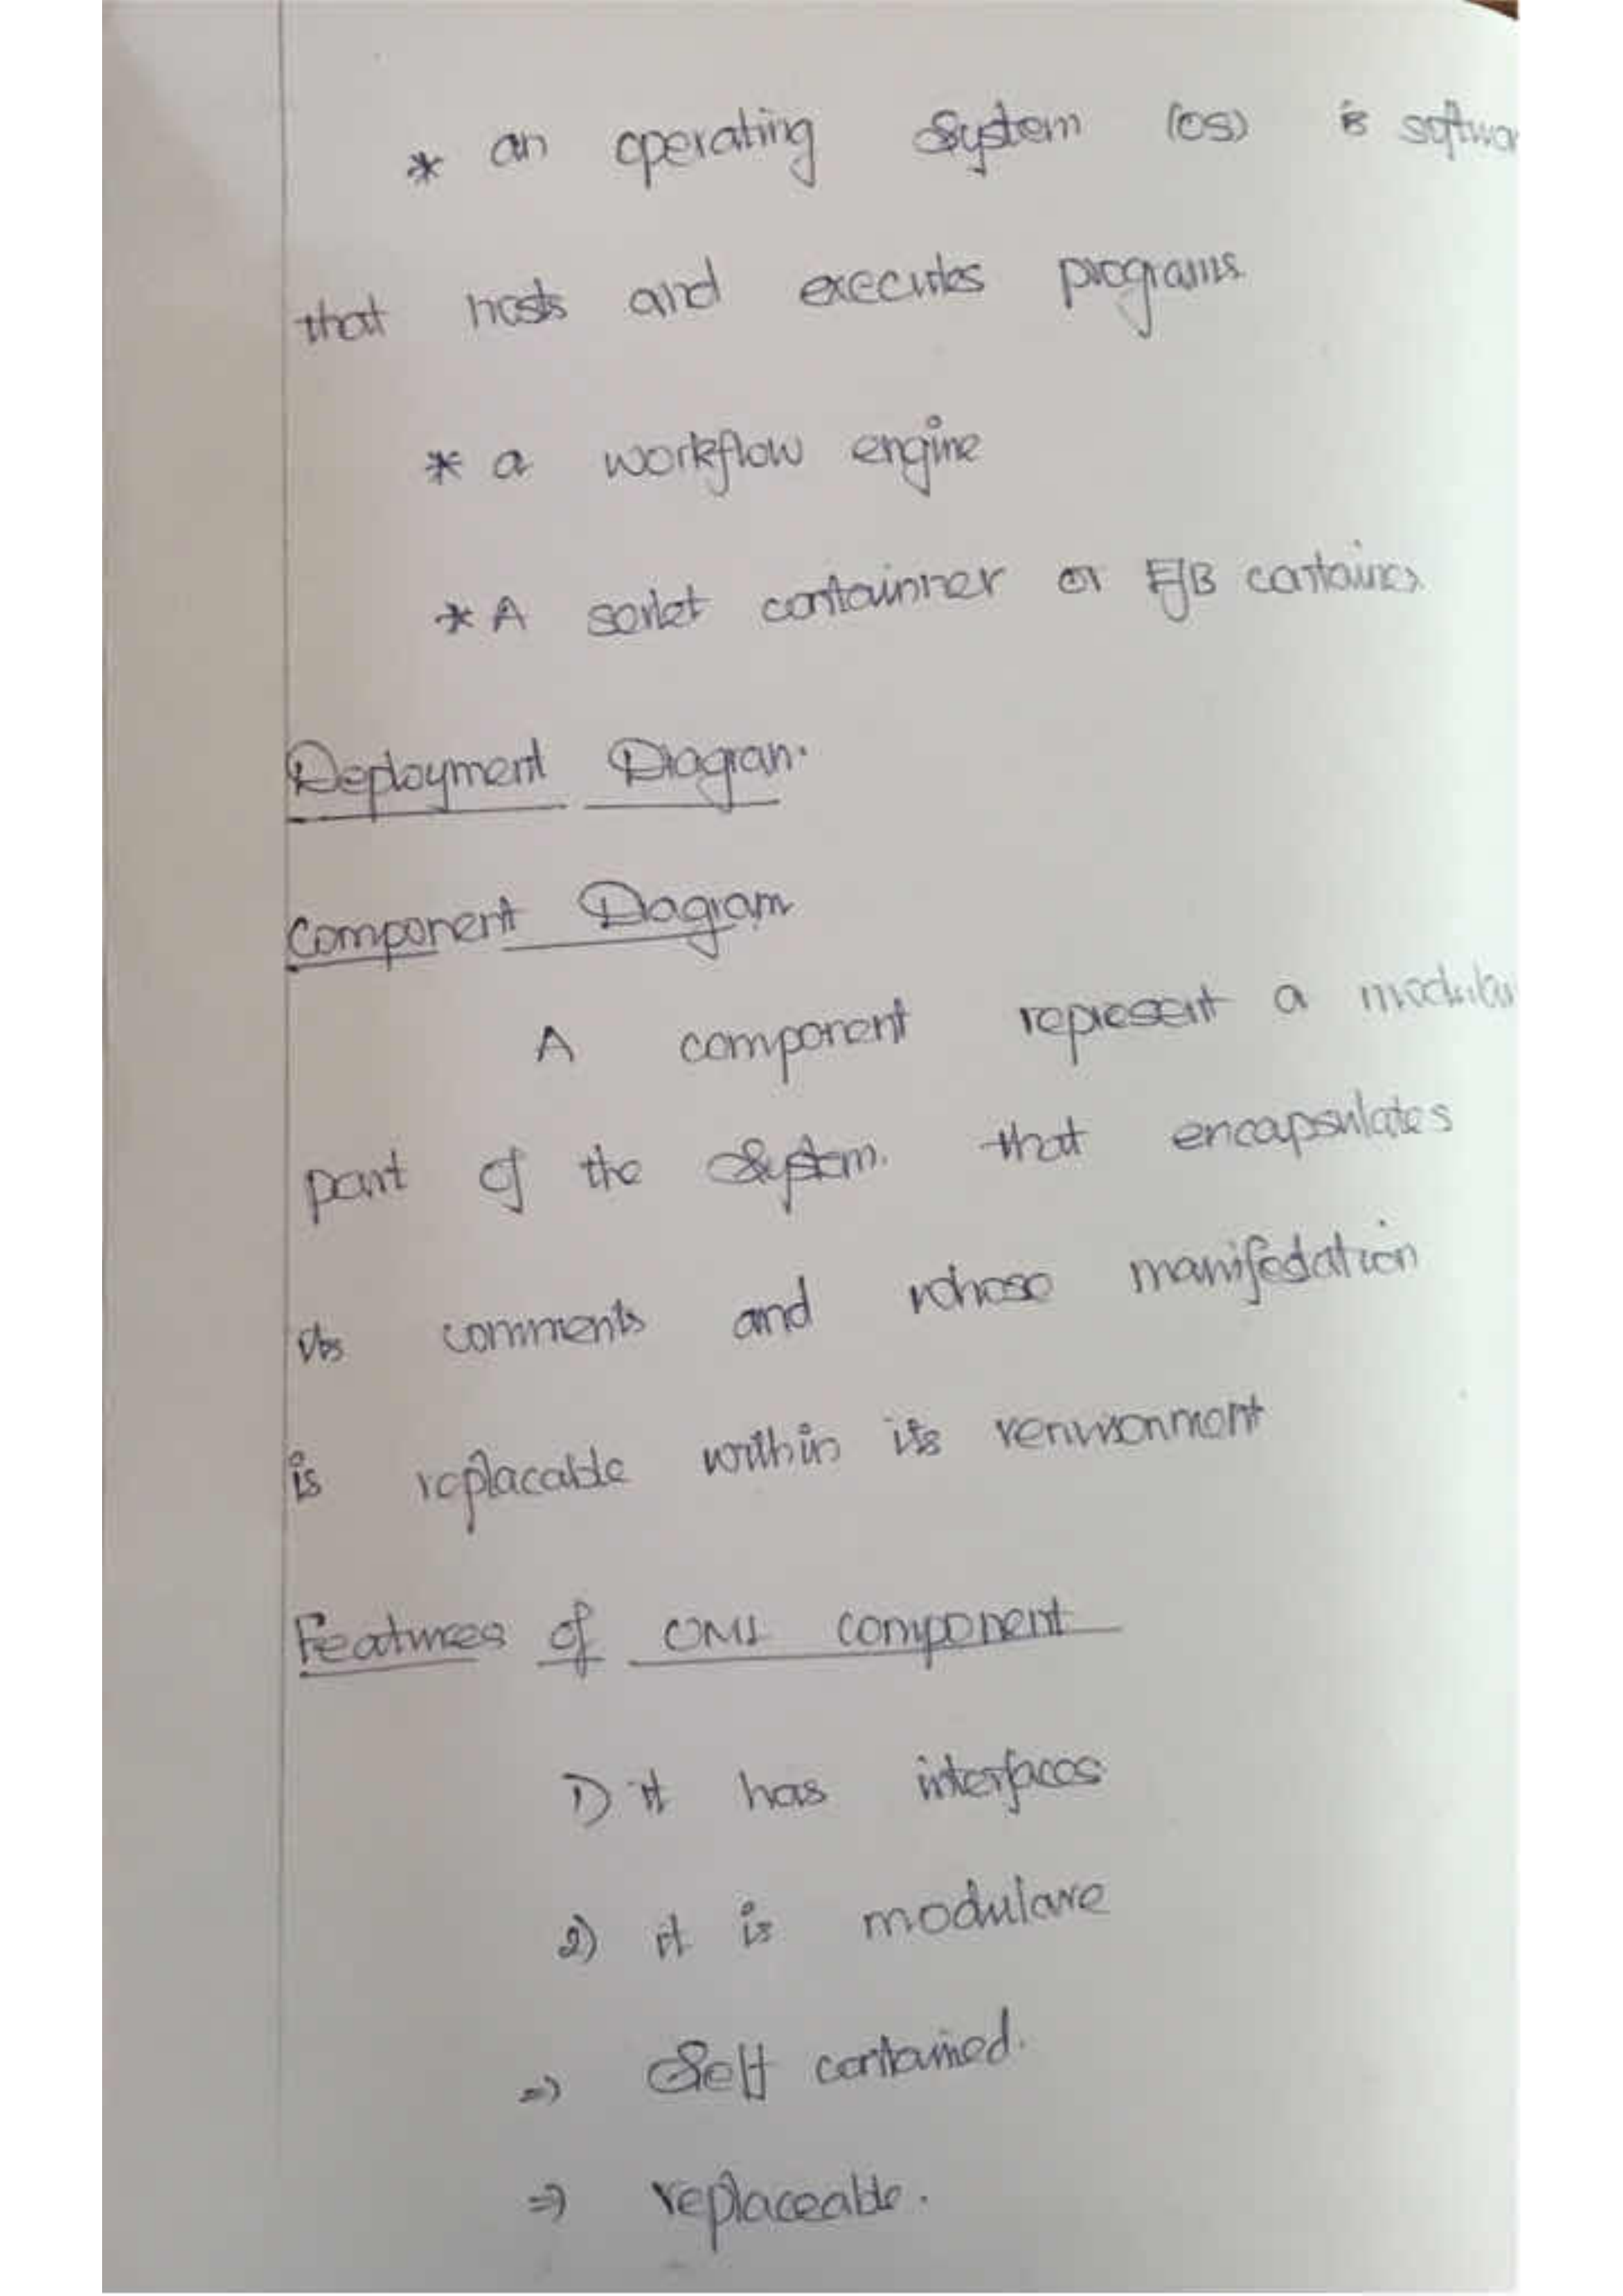 * an operating System (OS) is softwar
that hosts and executes programs.
* a workflow engine
* A serlet containner or EJB container
Deployment Diagram.
Component Diagram
A component represent a modular
part of the System. that encapsulates
its comments and whose manifestation
is replacable within its environment
Features of UML component
1) it has interfaces
2) it is modulare
=> Self contained.
=> replaceable.